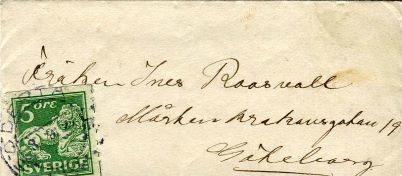 Fröken Ines Roosvall
Mårten Krakowsgatan 19
Göteborg
5 ÖRE
SVERIGE